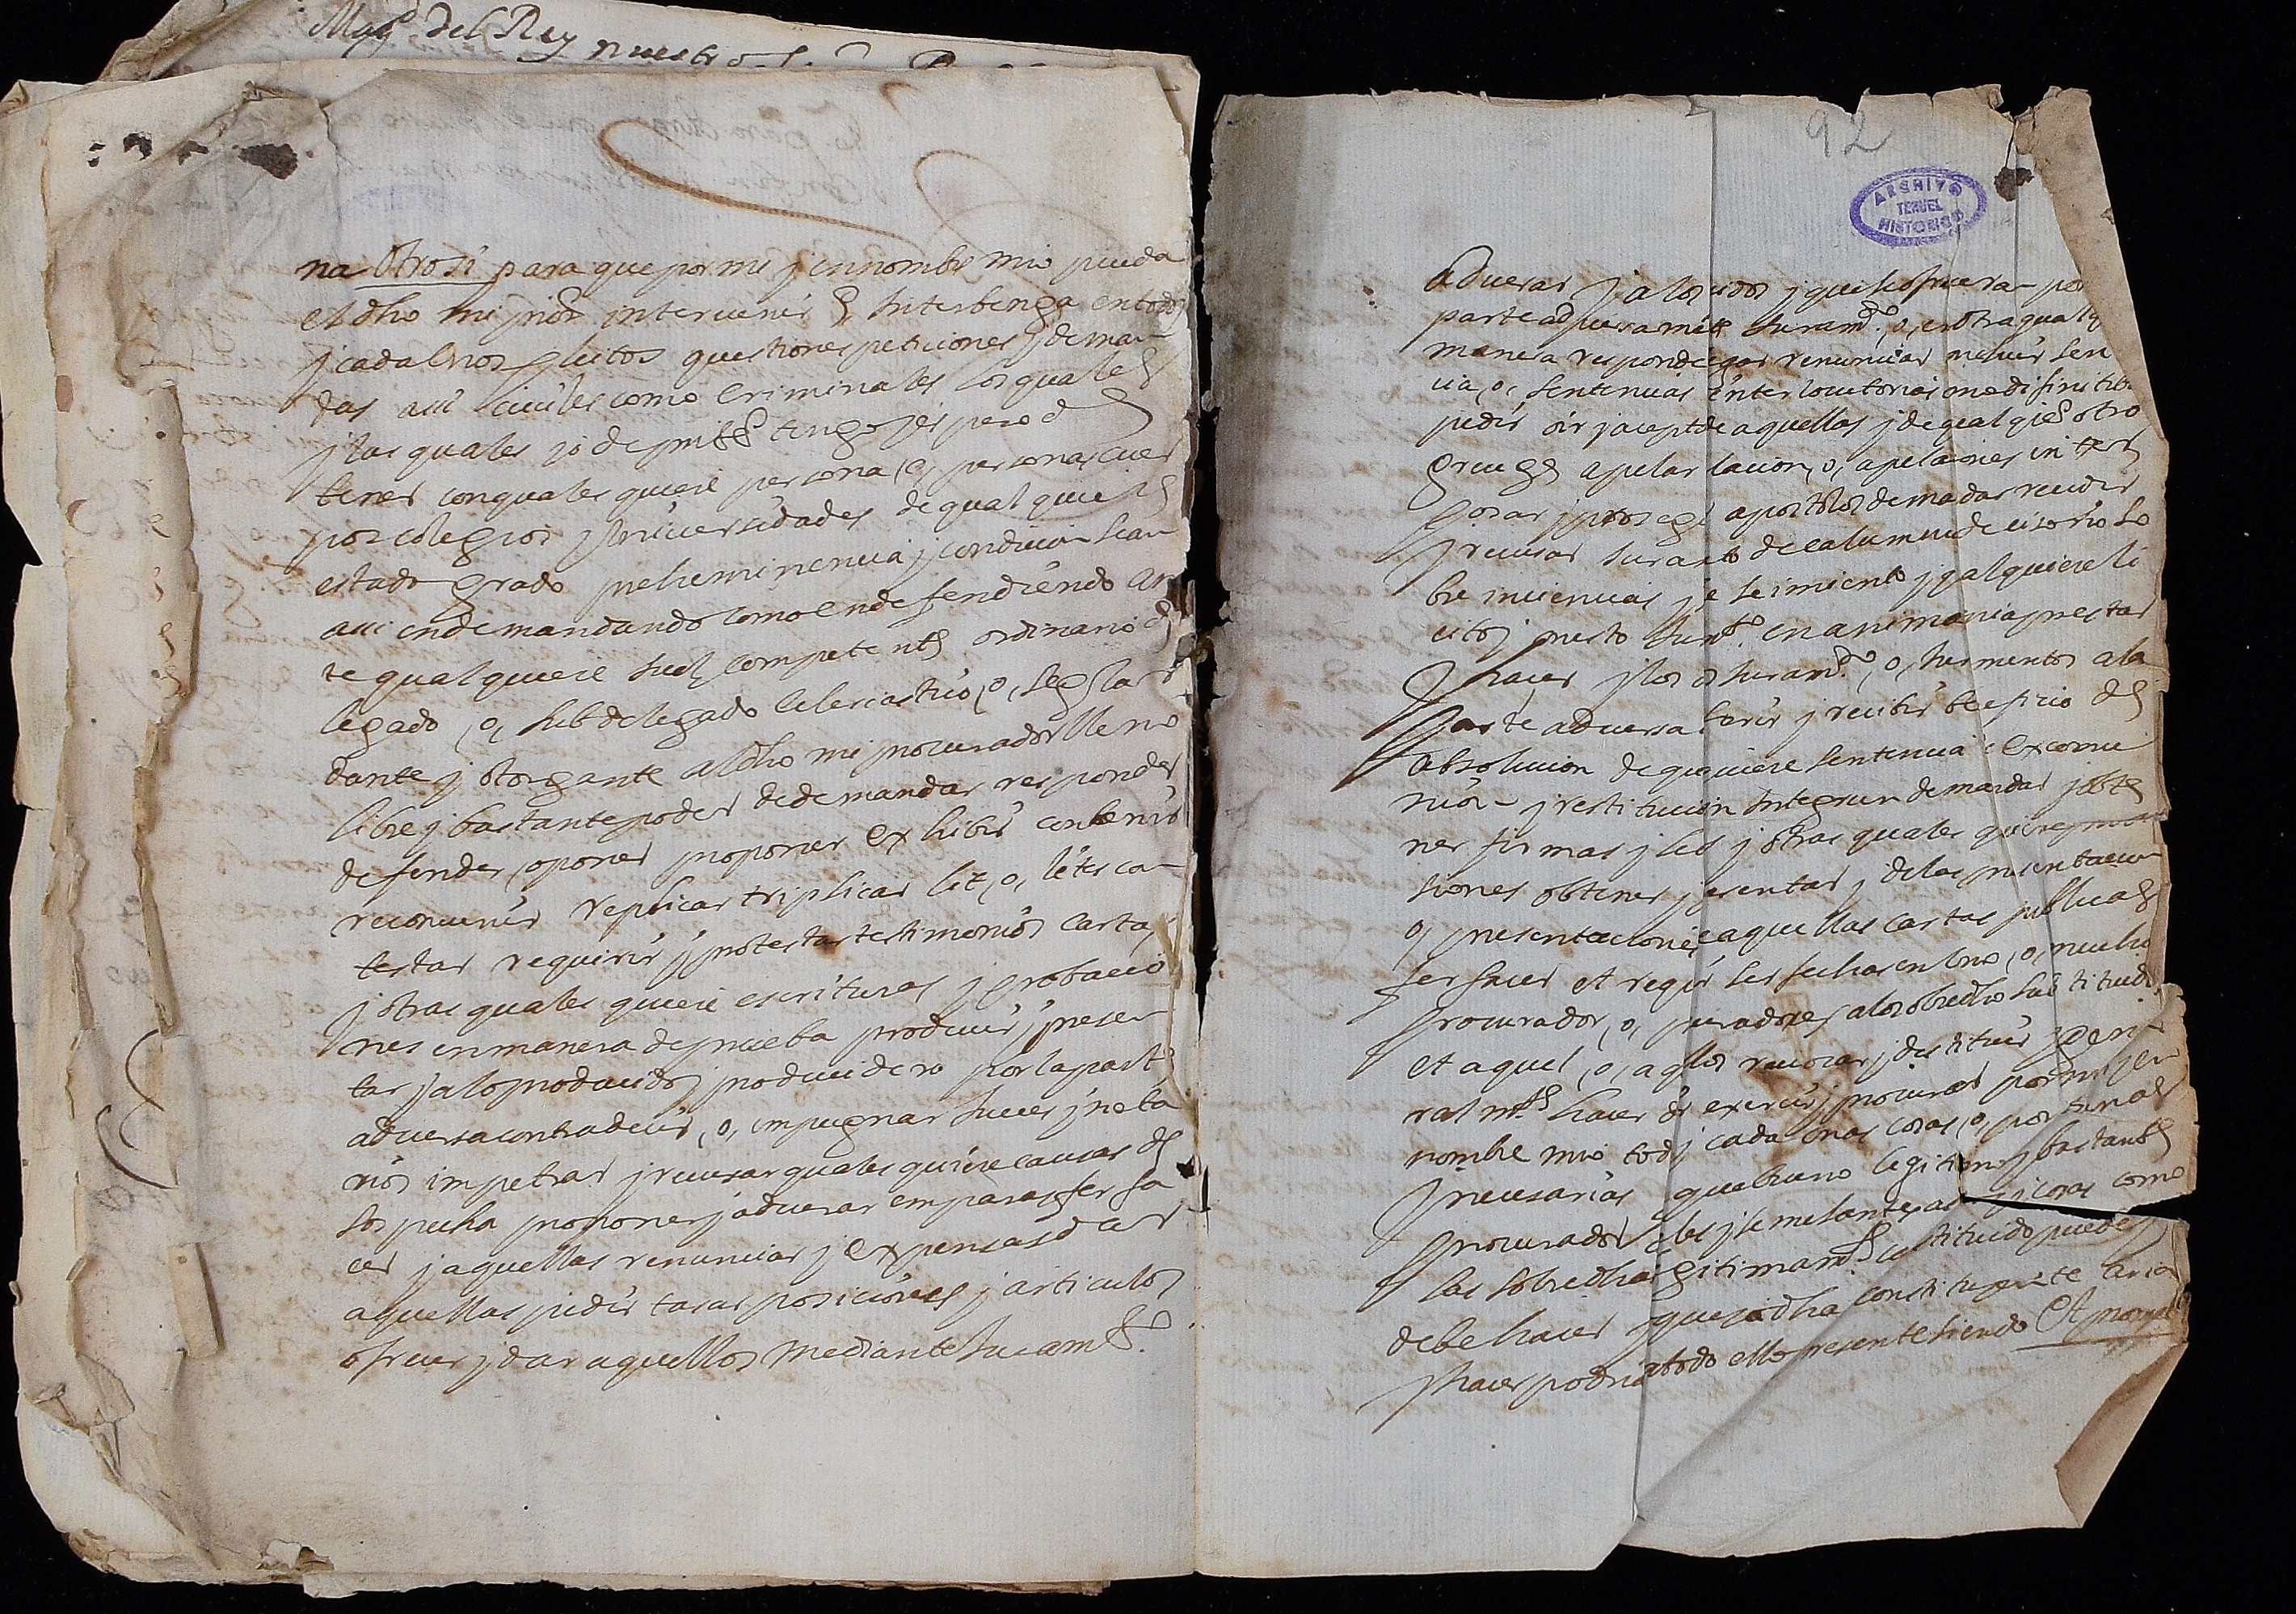 Mag.d del Rey nuestro
na Otrosi para que por mi y en nombre mio pueda
el dho mi pror intervenir e Interbenga en todos
y cada Unos pleitos questiones peticiones y deman
das assi civiles como Criminales los quales
y las quales yo de pnte tengo y espero de
tener con quales quiere persona, o, personas cuer
pos colegios y Universidades de qualquiere
estado grado preheminencia y condicion sean
assi en demandando como en defendiendo an
te qualquiere Juez competente ordinario de
legado, o, subdelegado eclesiastico, o, seglar
dante y otorgante al dho mi procurador lleno
libre y bastante poder de demandar responder
defender, oponer proponer exhibir convenir
reconvenir replicar triplicar lit, o, lites con
testar requirir y protestar testimonios cartas
y otras quales quiere escrituras y probacio
nes en manera de prueba producir y presen
tar y a lo producido y producidero por la parte
adversa contradecir, o, impugnar Jueces y nota
rios impetrar y recusar quales quiere causas de
sospecha proponer y adverar emparas fer fa
cer y aquellas renunciar y expensas dar
aquellas pedir tasar posiciones y articulos
ofrecer y dar aquellos mediante Juramto
92
ARCHIVO
TERUEL
HISTORICO
adverar y a los dados y que se ofreceran por
parte adversa mte Juramto, o, en otra qualq
manera responder renunciar sen
cia, o, sentencias interlocutorias
pedir oir y acept de aquellas y de qualquiere otro
greuge apelar lacion, o, apelaciones inter
posar y proseg apostolos demandar recivir
y recusar Juramto de calumnia decisorio
bre incidencias y qualquiere li
cito y onesto Juramto en anima mia prestar
y hacer y los Juramto, o, Juramentos a la
parte adversa y recibir beneficio de
absolucion de ququiere sentencia excomu
nion y restitucion Integrum demandar y obte
ner firmas y les y otras quales quiere
siones obtener y presentar y de las presentacion
o, presentaciones aquellas cartas publicas
fer facer et reqir ser fechas en Uno, o, muchos
procurador, o, curadores a lo sobredho substituir
et aquel, o, aqllos revocar y destituir y gene
ralmte hacer exercir y procurar por mi y en
nombre mio tod y cada Unas cosas, o, portunas
y necesarias que bueno legitimo y bastante
procurador y semejantes y cosas como
las sobredhas legitimamte constituido puede y
debe hacer y que yo dha constituyente haria y
hacer podria a todo ello presente siendo Et prom